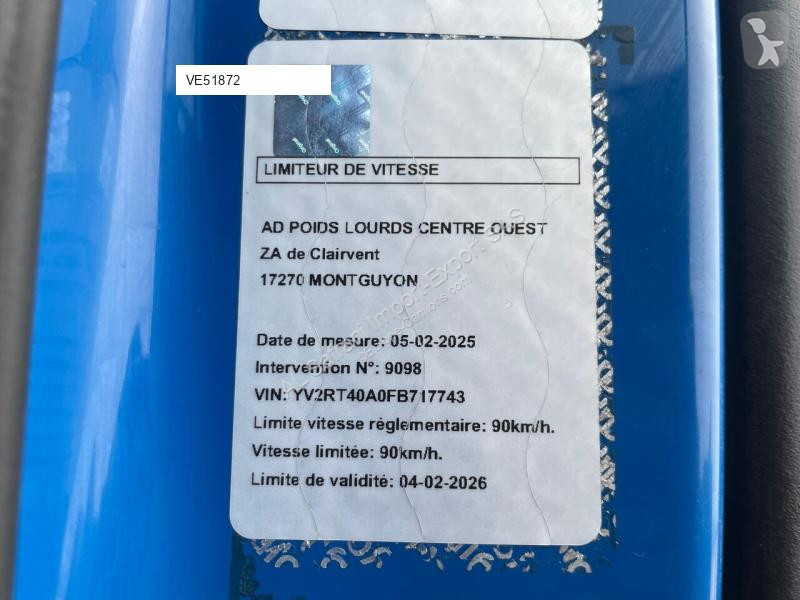 VE51872
LIMITEUR DE VITESSE
AD POIDS LOURDS CENTRE OUEST
ZA de Clairvent
17270 MONTGUYON
Date de mesure: 05-02-2025
Intervention N°: 9098
VIN: YV2RT40A0FB717743
Limite vitesse réglementaire: 90km/h.
Vitesse limitée: 90km/h.
Limite de validité: 04-02-2026